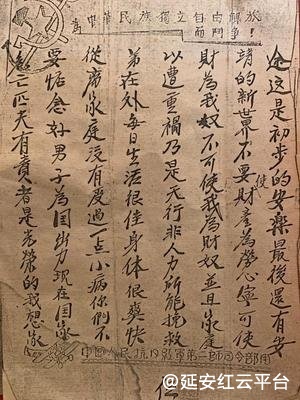 為中華民族獨立自由解放
而鬥爭!
全这是初步的安樂最後還有安
靖的新世界不要財產為營心寧可使
財為我奴不可使我為財奴並且家庭
以遭重禍乃是天行非人力所能挽救
弟在外每日生活很佳身体很爽快
從离家庭沒有度過一点小病你們不
要惦念好男子為国出力現在国家
興亡匹夫有責者是光榮的我想家
中國人民抗日紅軍第二師司令部用
@延安红云平台